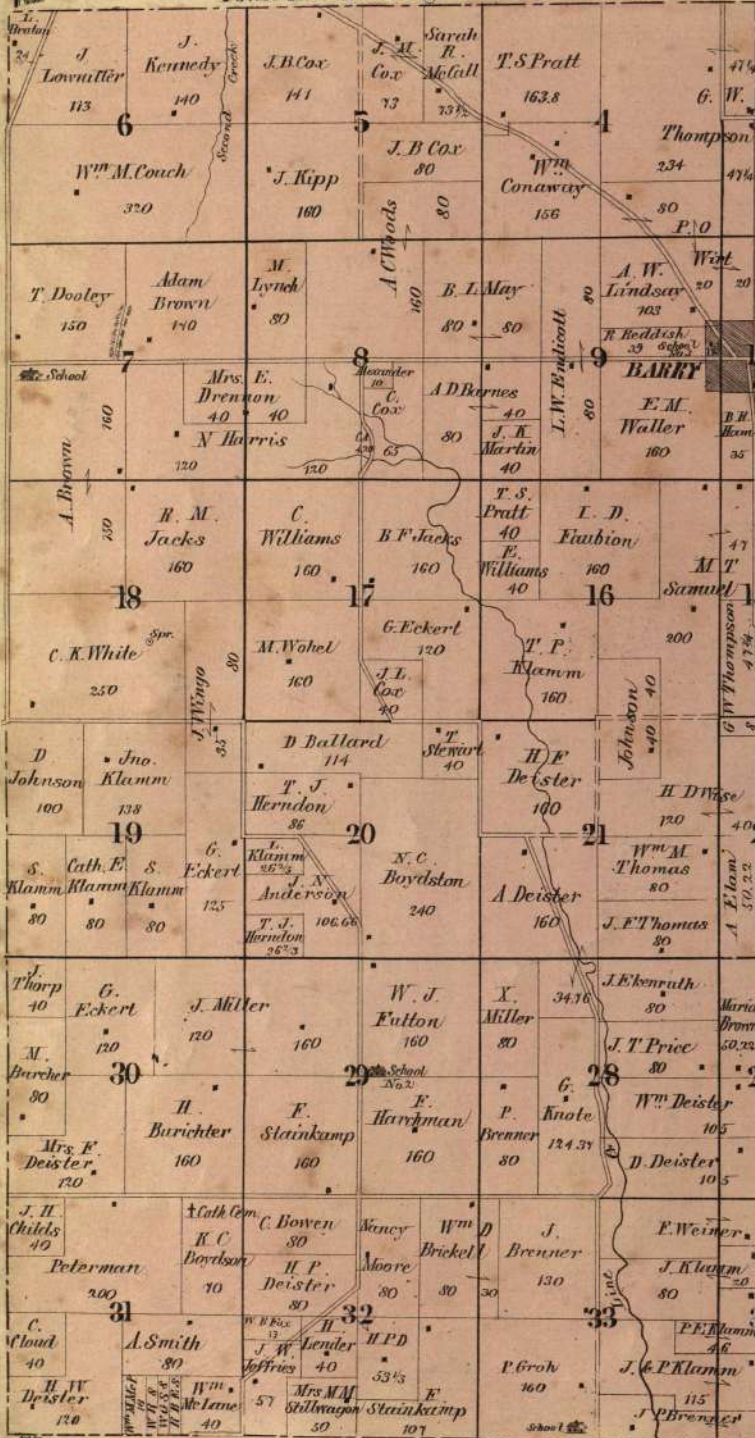 L.
Braton
24
J
Lowmiller
113
J.
Kennedy
140
Second Creek
J.B.Cox
141
J. M.
Cox
73
Sarah
R.
McCall
73 1/2
T.S Pratt
163.8
47 1/4
G. W.
Thompson
234
47 1/4
6
5
4
Wm M.Couch
320
J. Kipp
160
J.B Cox
80
A C Woods
80
160
Wm
Conaway
156
80
P.O
T. Dooley
150
Adam
Brown
140
M.
Lynch
80
B. L May
80
80
L.W. Endicott
80
80
A. W.
Lindsay
103
Wirt
20
20
R Reddish
39
School
BARRY
7
8
9
School
A. Brown
160
150
Mrs. E.
Drennon
40
40
N Harris
120
120
Alexander
10
C.
Cox
65
A D Barnes
40
80
J. K
Martin
40
E M.
Waller
160
B.H.
35
R. M.
Jacks
160
C.
Williams
160
B F Jacks
160
T. S.
Pratt
40
E.
Williams
40
L. D.
Faubion
160
47
M T
Samuel
200
18
17
16
1
C. K. White
250
Spr.
J. Wingo
80
35
M. Wohel
160
G. Eckert
120
J. L.
Cox
40
T. P.
Klamm
160
Johnson
40
40
G W Thompson
47 1/4
8
D
Johnson
100
Jno.
Klamm
138
D Ballard
114
T
Stewart
40
H F
Deister
160
H D Wise
120
40
T. J.
Herndon
86
19
20
21
S.
Klamm
80
Cath. E.
Klamm
80
S.
Klamm
80
G.
Eckert
125
L.
Klamm
26 2/3
J. N.
Anderson
106.66
T. J.
Herndon
26 2/3
N. C.
Boydston
240
A Deister
160
Wm M.
Thomas
80
J. F Thomas
80
A Elam
50.22
J.
Thorp
40
G.
Eckert
120
J. Miller
120
160
W. J.
Fulton
160
X.
Miller
80
34.76
J. Ekenruth
80
Maria
Brown
50.22
M.
Burcher
80
J. T Price
80
30
29
School
No.2
28
2
H.
Burichter
160
F.
Stainkamp
160
F.
Harchman
160
P.
Brenner
80
G.
Knote
124.37
Wm Deister
105
D. Deister
105
Mrs. F.
Deister
120
J. H
Childs
40
Peterman
200
Cath Cem.
K C
Boydson
70
C. Bowen
80
H P.
Deister
80
Nancy
Moore
80
Wm D
Brickell
80
30
J.
Brenner
130
F. Weiner
J. Klamm
80
20
Line
31
32
33
C.
Cloud
40
A. Smith
80
W B Fox
13
J W
Jeffries
57
H
Lender
40
H P D
53 1/3
P. Groh
160
P.F. Klamm
46
J. & P Klamm
115
H W
Deister
120
Wm
McLane
40
Mrs M M
Stillwagon
50
F
Stainkamp
107
School
J P Brenner